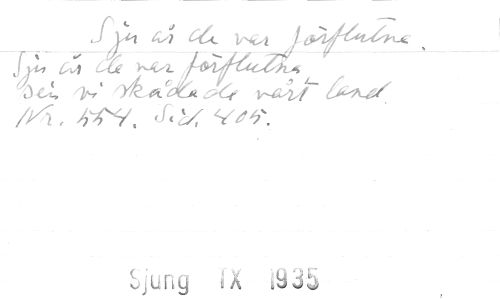 Sju år de var förflutna.
Sju år de var förflutna
sen vi skådade vårt land.
Nr. 554. Sid. 405.
Sjung IX 1935